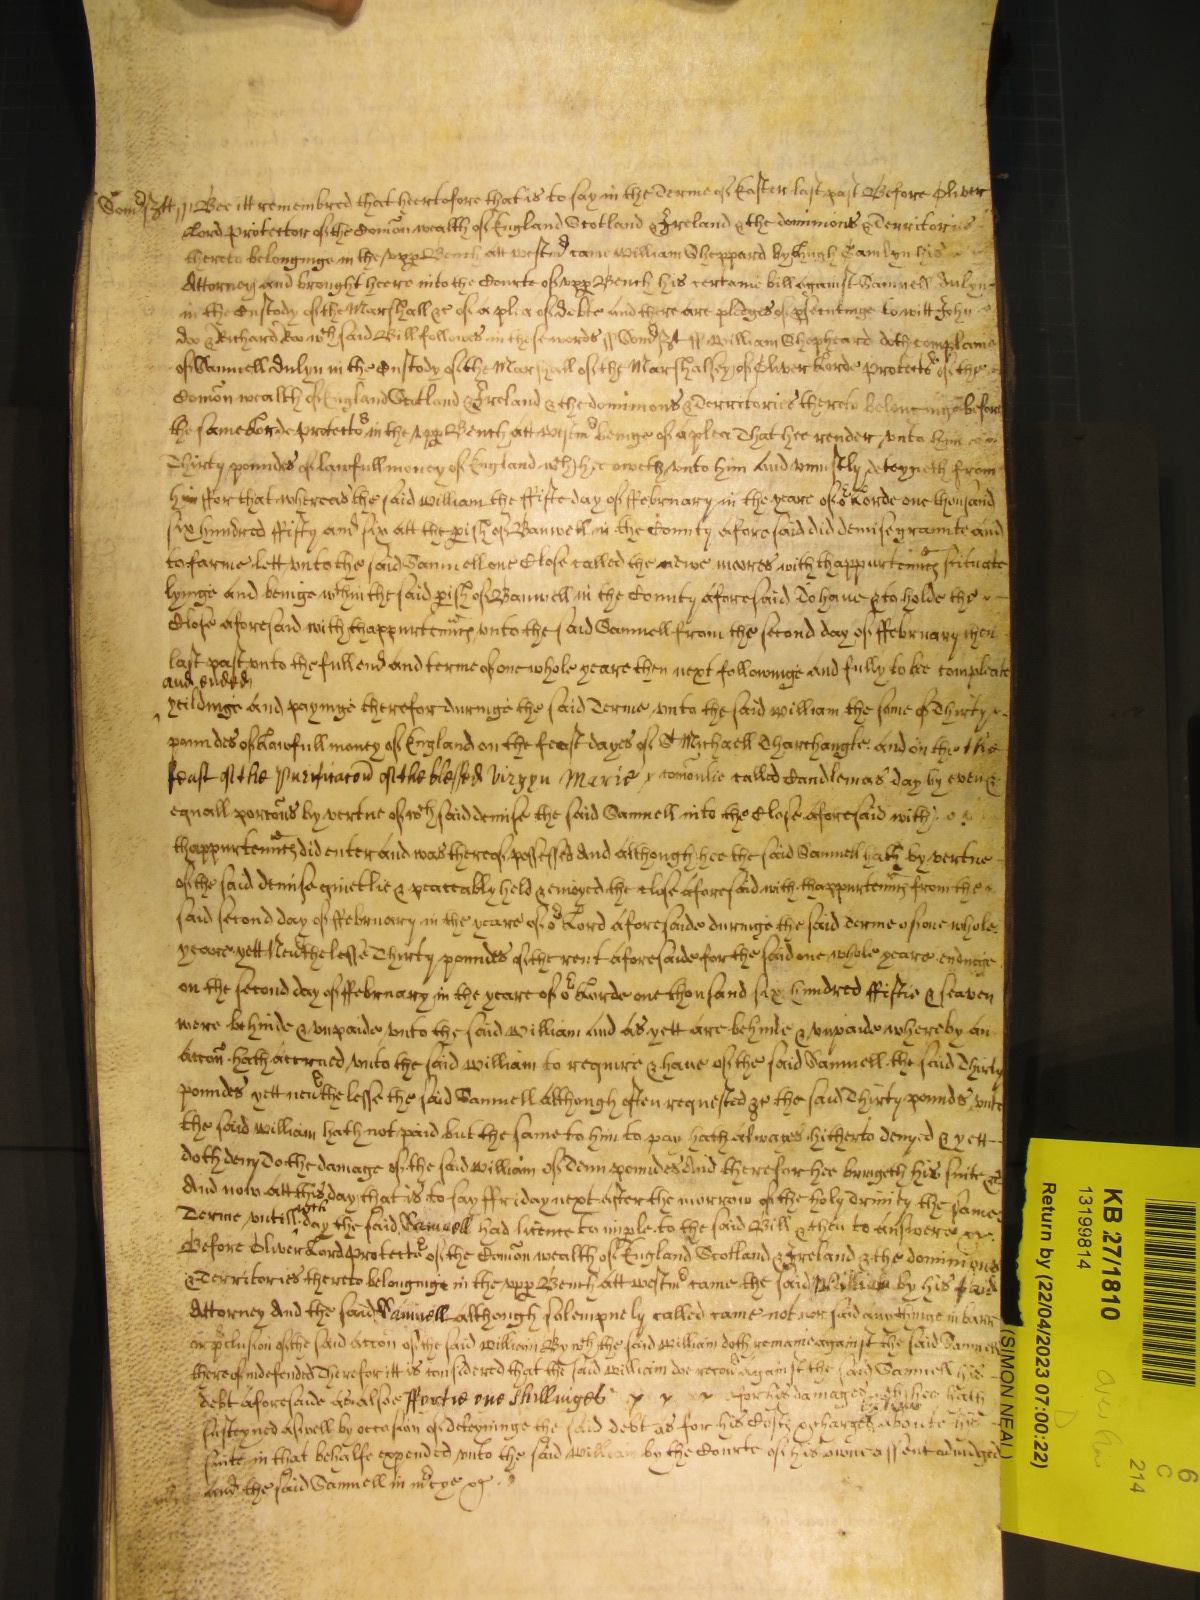 Somsett ss Bee itt remembred that heertofore that is to say in the Terme of Easter last past Before Oliver
Lord Protector of the Comon wealth of England Scotland & Ireland & the dominions & Territories
thereto belonginge in the upp Bench att Westmr came William Sheppard by Hugh Tamlyn his
Attorney and brought heere into the Courte of upp Bench his certaine bill against Samuell Dulyn
in the Custody of the Marshall &c of a plea of debte and there are pledges of psecutinge to witt John
doo & Richard Roo wch said Bill followes in these words ss Somst ss William Shepheard doth complaine
of Samuell Dulyn in the Custody of the Marshall of the Marshalsey of Oliver Lorde Protector of the
Comon wealth of England Scotland & Ireland & the dominions & Territories thereto belonginge before
the same Lorde Protector in the upp Bench att Westmr beinge of a plea That hee render unto him
Thirty poundes of lawfull money of England wch hee oweth unto him and uniustly deteyneth from
him ffor that whereas the said William the ffifte day of ffebruary in the yeare of or Lorde one thousand
six hundred ffifty and six att the pish of Banwell in the County aforesaid did demise graunte and
to farme lett unto the said Samuell one Close called the newe moores with thappurtennces scituate
lyinge and beinge wthin the said pish of Banwell in the County aforesaid To have & to holde the
Close aforesaid with thappurtennces unto the said Samuell from the second day of ffebruary then
last past unto the full end and terme of one whole yeare then next followinge and fully to be compleate
and ended
yeildinge and payinge therefor duringe the said Terme unto the said William the some of Thirty
poundes of Lawfull money of England on the feast dayes of St Michaell Tharchangle and on the
feast of the Purificacon of the blessed Virgyn Marie comonlie called Candlemas day by even &
equall porcons by vertue of wch said demise the said Samuell into the Close aforesaid with
thappurtennces did enter and was thereof possessed And although hee the said Samuell hath by vertue
of the said demise quietlie & peaceably held & enioyed the close aforesaid with thappurtennces from the
said second day of ffebruary in the yeare of or Lord aforesaide duringe the said Terme of one whole
yeare yett Nevthelesse Thirty poundes of the rent aforesaide for the said one whole yeare endinge
on the second day of ffebruary in the yeare of or Lorde one thousand six hundred ffiftie & seaven
were behinde & unpaide unto the said William and as yett are behinde & unpaide whereby an
accon hath accrued unto the said William to require & have of the said Samuell the said Thirty
poundes yett nevthelesse the said Samuell Although often requested &c the said Thirty pounds unto
the said William hath not paid but the same to him to pay hath alwayes hitherto denyed & yett
doth deny To the damage of the said William of Tenn poundes And therefor hee bringeth his suite &c
And now att this day that is to say ffriday next after the morrow of the holy Trinity the same
Terme untill wch day the said Samuell had licence to imple to the said Bill & then to answere &c
Before Oliver Lord Protector of the Comon wealth of England Scotland & Ireland & the dominions
& Territories thereto belonginge in the upp Bench att Westmr came the said William by his said
Attorney And the said Samuell although solempnely called came not nor said any thinge in barr
or pclusion of the said accon of the said William By wch the said William doth remaine against the said Samuell
thereof undefended Therefor itt is considered that the said William doe recov against the said Samuell his
debt aforesaide as alsoe ffortie one shillinges x x x for his damages wch hee hath
susteyned aswell by occasion of deteyninge the said debt as for his Costs & charges aboute his
suite in that behalfe expended unto the said William by the Courte of his owne assent adiudged
and the said Samuell in mcye &c
KB 27/1810
13199814
Return by (22/04/2023 07:00:22)
(SIMON NEAL)
6
C
214
D